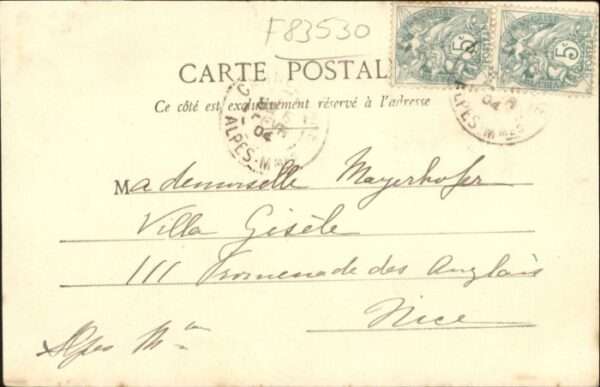 F83530
5 5
CARTE POSTALE
Ce côté est exclusivement réservé à l'adresse
04
ALPES-Mmes
04
ALPES-Mmes
Mademoiselle Mayerhofer
Villa Gisèle
111 Promenade des Anglais
Nice
Alpes Mmes